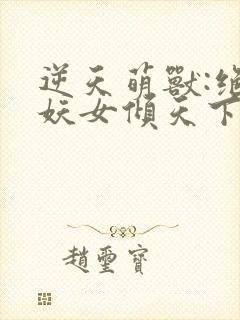 逆天萌獸:絕
妖女傾天下
趙璽寶